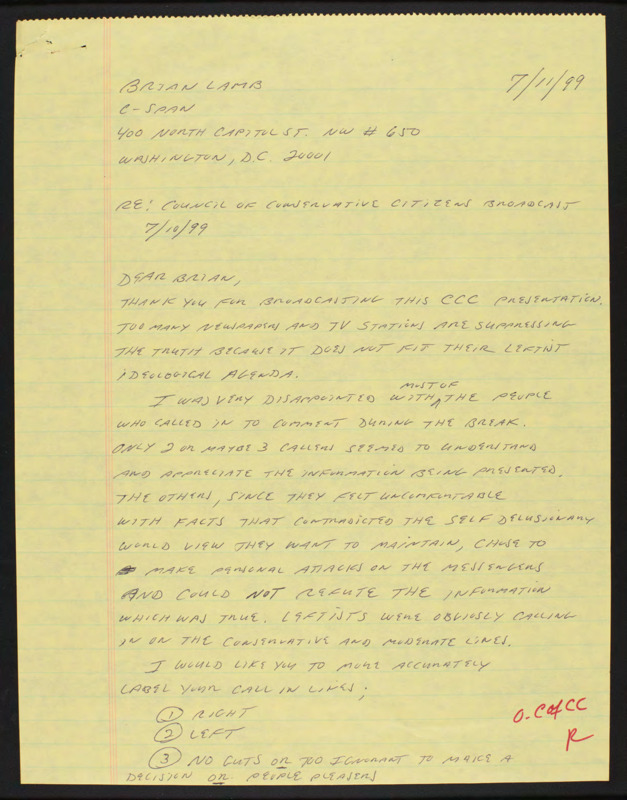 7/11/99
BRIAN LAMB
C-SPAN
400 NORTH CAPITOL ST. NW # 650
WASHINGTON, D.C. 20001
RE: COUNCIL OF CONSERVATIVE CITIZENS BROADCAST
7/10/99
DEAR BRIAN,
THANK YOU FOR BROADCASTING THIS CCC PRESENTATION.
TOO MANY NEWSPAPERS AND TV STATIONS ARE SUPPRESSING
THE TRUTH BECAUSE IT DOES NOT FIT THEIR LEFTIST
IDEOLOGICAL AGENDA.
I WAS VERY DISAPPOINTED WITH MOST OF THE PEOPLE
WHO CALLED IN TO COMMENT DURING THE BREAK.
ONLY 2 OR MAYBE 3 CALLERS SEEMED TO UNDERSTAND
AND APPRECIATE THE INFORMATION BEING PRESENTED.
THE OTHERS, SINCE THEY FELT UNCOMFORTABLE
WITH FACTS THAT CONTRADICTED THE SELF DELUSIONARY
WORLD VIEW THEY WANT TO MAINTAIN, CHOSE TO
MAKE PERSONAL ATTACKS ON THE MESSENGERS
AND COULD NOT REFUTE THE INFORMATION
WHICH WAS TRUE. LEFTISTS WERE OBVIOSLY CALLING
IN ON THE CONSERVATIVE AND MODERATE LINES.
I WOULD LIKE YOU TO MORE ACCURATELY
LABEL YOUR CALL IN LINES;
1 RIGHT
2 LEFT
3 NO GUTS OR TOO IGNORANT TO MAKE A
DECISION OR PEOPLE PLEASERS
O. CofCC
R